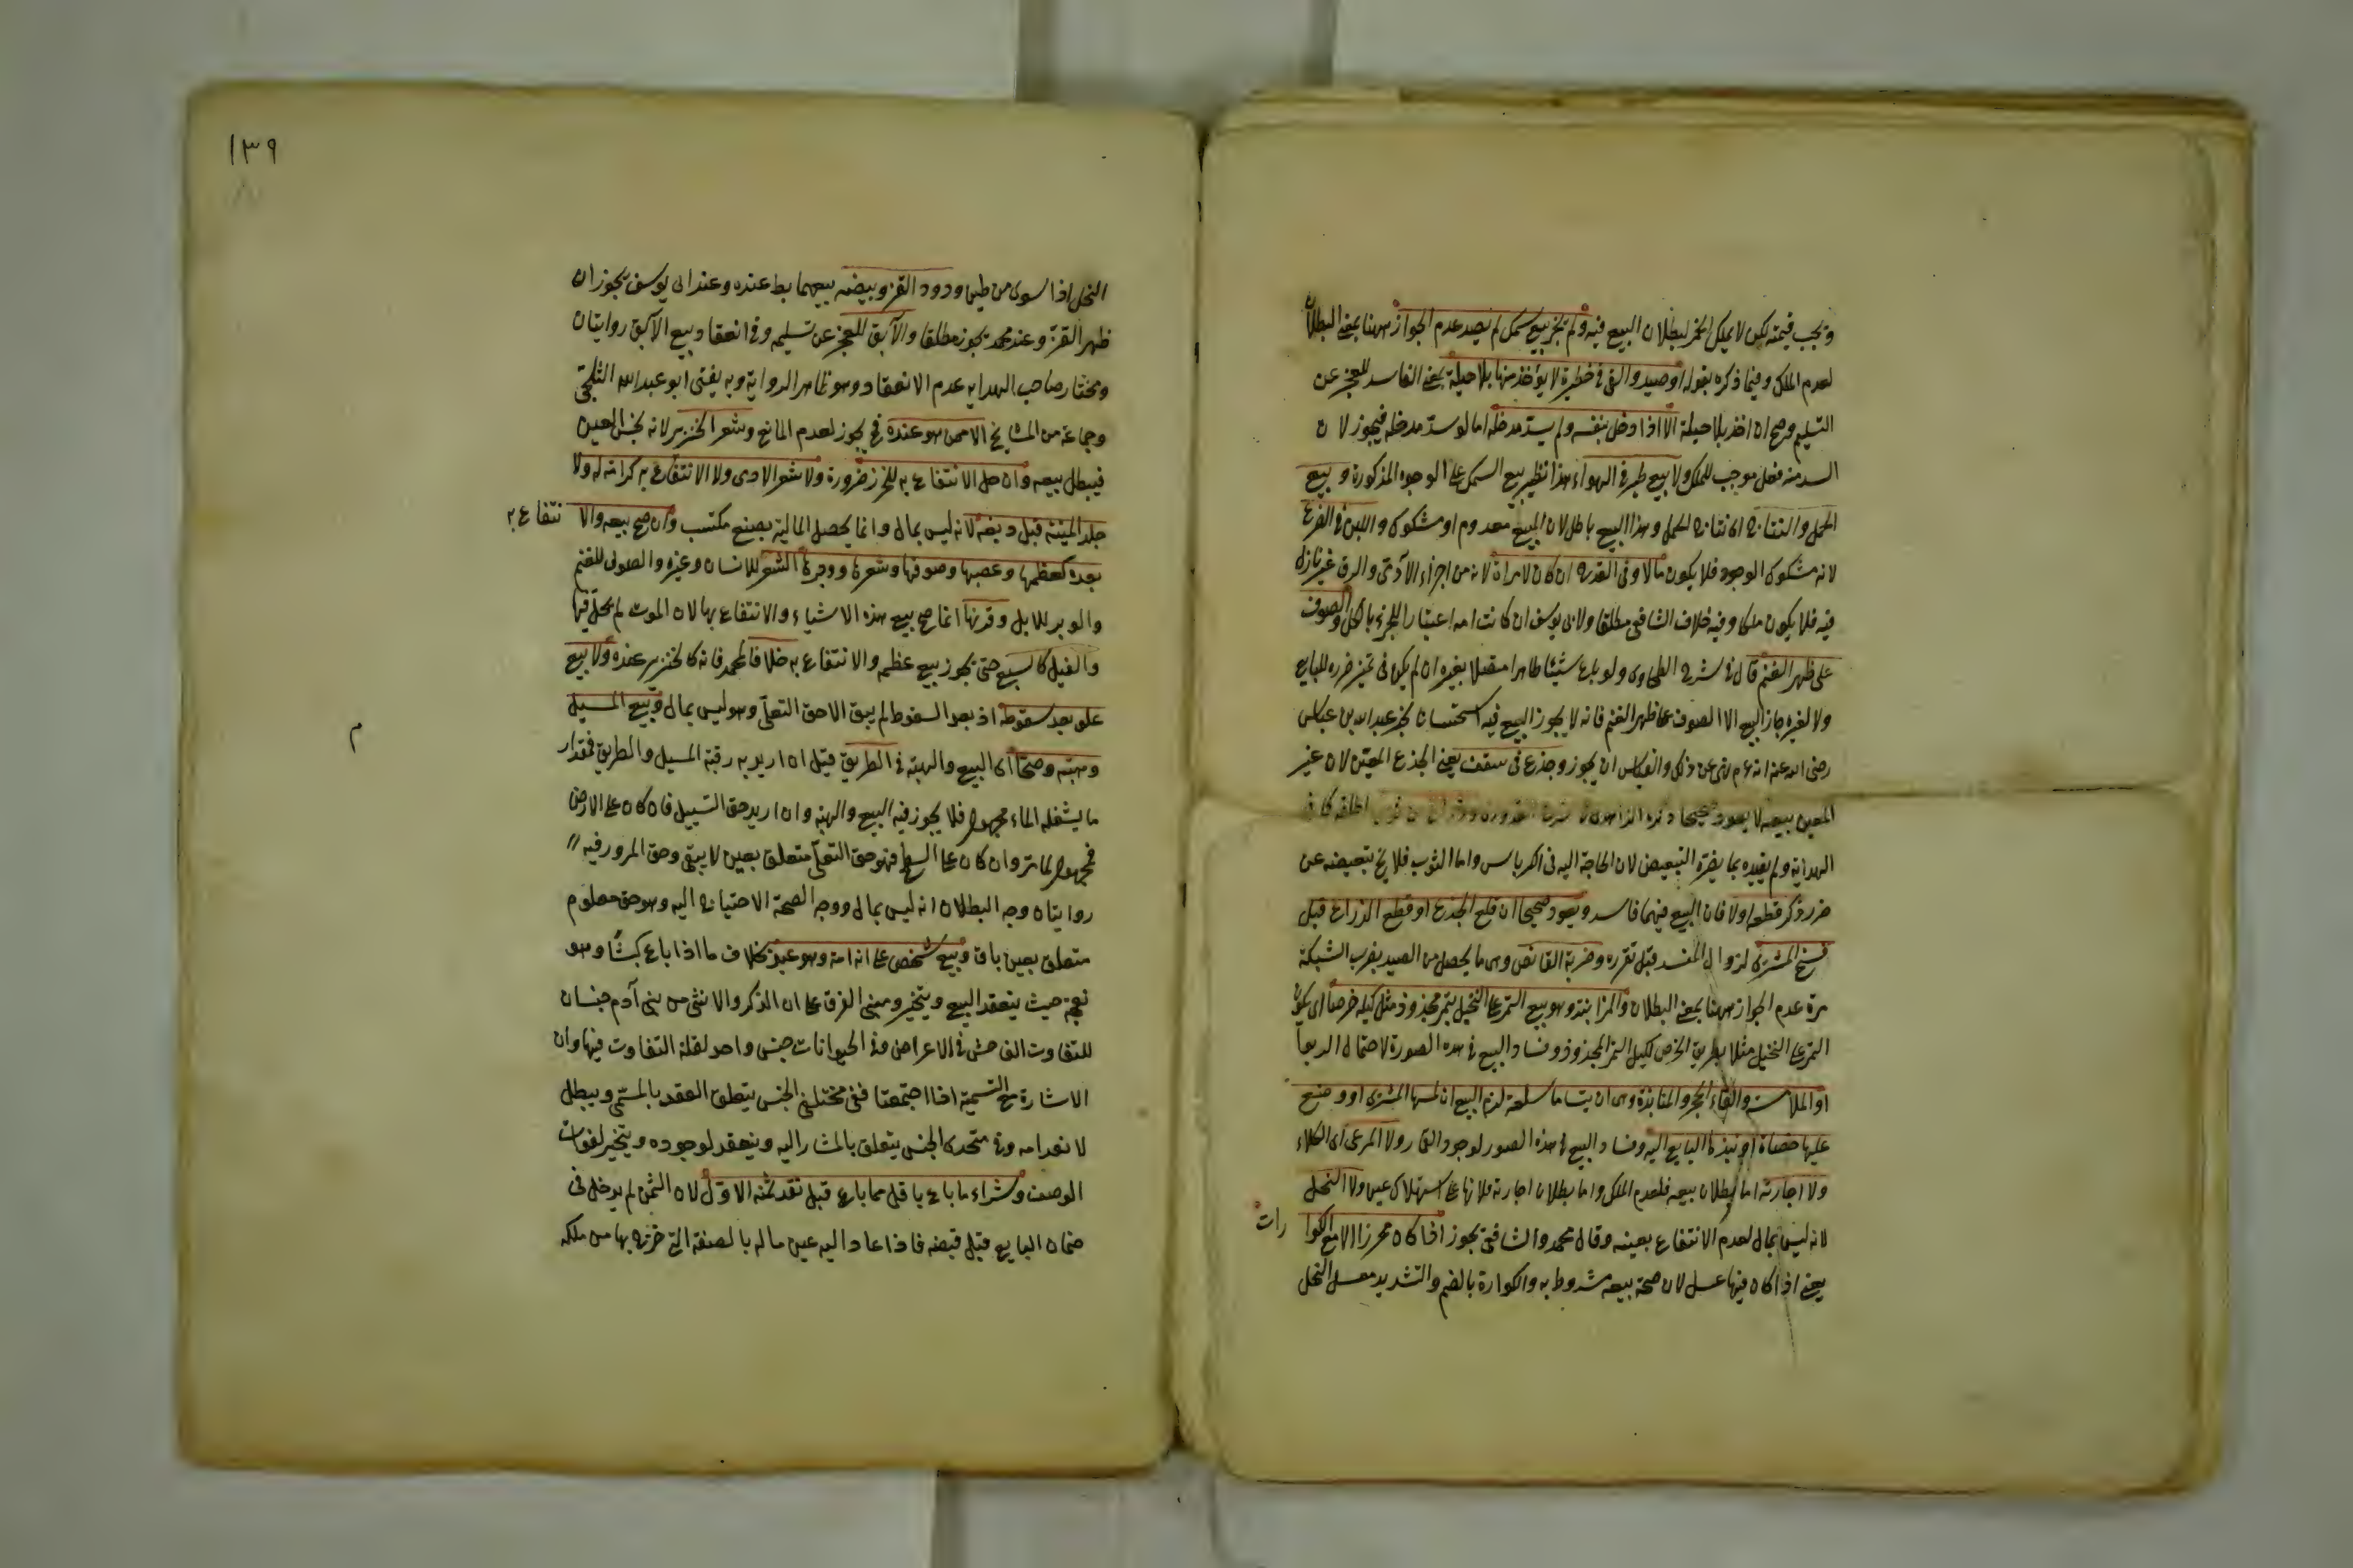 وتجب قيمته لكن لا يملك الخمر لبطلان البيع فيه ولم يجز بيع سمك لم يصد عدم الجواز ههنا بمعنى البطلان
لعدم الملك وفيما ذكره بقوله او صيد والقي في حظيرة لا يؤخذ منها بلا حيلة بمعنى الفاسد للعجز عن
التسليم وصح ان اخذ بلا حيلة الا اذا دخل بنفسه ولم يسد مدخله اما لو سد مدخله فيجوز لان
السد منه فعل موجب للملك ولا بيع طير في الهواء هذا نظير بيع السمك على الوجوه المذكورة وبيع
الحمل والنتاج اي نتاج الحمل وهذا البيع باطل لان المبيع معدوم او مشكوك واللبن في الضرع
لانه مشكوك الوجود فلا يكون مالا وفي القدح ان كان لامراة لانه من اجزاء الآدمي والرق غير نازل
فيه فلا يكون ملكا وفيه خلاف الشافعي مطلقا ولابي يوسف ان كانت امة اعتبارا للجزء بالكل والصوف
على ظهر الغنم قال في شرح الطحاوي ولو باع شيئا طاهرا متصلا بغيره ان لم يكن في تميز ضرر للبايع
ولا لغيره جاز البيع الا الصوف على ظهر الغنم فانه لا يجوز البيع فيه استحسانا لخبر عبد الله بن عباس
رضي الله عنه انه عم نهى عن ذلك والقياس ان يجوز وجذع في سقف يعني الجذع المعين لان غير
المعين بيعه لا يعود صحيحا ذكره الزاهدي في شرح القدوري وذراع من ثوب اطلقه كما في
الهداية ولم يقيده بما يضره التبعيض لان الحاجة اليه في الكرباس واما الثوب فلا يخ تبعيضه عن
ضرر ذكر قطعه اولا فان البيع فيهما فاسد ويعود صحيحا ان قلع الجذع او قطع الذراع قبل
فسخ المشتري لزوال المفسد قبل تقرره وضربة القانص وهي ما يحصل من الصيد بضرب الشبكة
مرة عدم الجواز ههنا بمعنى البطلان والمزابنة وهو بيع التمر على النخيل بتمر مجذوذ مثل كيله خرصا اي يكون
التمر على النخيل مثلا بطريق الخرص لكيل التمر المجذوذ وفساد البيع في هذه الصورة لاحتمال الربوا
او الملامسة والقاء الحجر والمنابذة وهي ان يتساوما سلعة لزم البيع ان لمسها المشتري او وضع
عليها حصاة او نبذها البايع اليه وفساد البيع في هذه الصور لوجود القمار ولا المرعى اي الكلاء
ولا اجارته اما بطلان بيعه فلعدم الملك واما بطلان اجارته فلانها على استهلاك عين ولا النحل
لانه ليس بمال لعدم الانتفاع بعينه وقال محمد والشافعي يجوز اذا كان محرزا الا مع الكوارات
يعني اذا كان فيها عسل لان صحة بيعه مشروط به والكوارة بالضم والتشديد معسل النحل
١٣٩
النحل اذا سوى من طين ودود القز وبيضه بيعهما بط عنده وعند ابي يوسف يجوز ان
ظهر القز وعند محمد يجوز مطلقا والآبق للعجز عن تسليمه وفي انعقاد بيع الآبق روايتان
ومختار صاحب الهداية عدم الانعقاد وهو ظاهر الرواية وبه يفتى ابو عبد الله الثلجي
وجماعة من المشايخ الا ممن هو عنده فح يجوز لعدم المانع وشعر الخنزير لانه نجس العين
فيبطل بيعه وان حل الانتفاع به للخرز ضرورة ولا شعر الادمي ولا الانتفاع به كرامة له ولا
جلد الميتة قبل دبغه لانه ليس بمال وانما يحصل المالية بصنع مكتسب وان صح بيعه والانتفاع به
بعده كعظمها وعصبها وصوفها وشعرها ووبرها الشعر للانسان وغيره والصوف للغنم
والوبر للابل وقرنها انما صح بيع هذه الاشياء والانتفاع بها لان الموت لم يحل فيها
والفيل كالسبع حتى يجوز بيع عظمه والانتفاع به خلافا لمحمد فانه كالخنزير عنده ولا بيع
علو بعد سقوطه اذ بعد السقوط لم يبق الا حق التعلي وهو ليس بمال وبيع المسيل
وهبته وصحتا اي البيع والهبة في الطريق قيل ان اريد به رقبة المسيل والطريق فمقدار
ما يشغله الماء مجهول فلا يجوز فيه البيع والهبة وان اريد حق التسييل فان كان على الارض
فمجهول لما مر وان كان على السطح فهو حق التعلي متعلق بعين لا يبقى وحق المرور فيه
م
روايتان وجه البطلان انه ليس بمال ووجه الصحة الاحتياج اليه وهو حق معلوم
متعلق بعين باق وبيع شخص على انه امة وهو عبد بخلاف ما اذا باع كبشا وهو
نعجة حيث ينعقد البيع ويتخير ومبنى الفرق على ان الذكر والانثى من بني آدم جنسان
للتفاوت الفاحش في الاعراض وفي الحيوانات جنس واحد لقلة التفاوت فيها وان
الاشارة مع التسمية اذا اجتمعتا ففي مختلفي الجنس يتعلق العقد بالمسمى ويبطل
لانعدامه وفي متحدي الجنس يتعلق بالمشار اليه وينعقد لوجوده ويتخير لفوات
الوصف وشراء ما باع باقل مما باع قبل نقد ثمنه الاول لان الثمن لم يدخل في
ضمان البايع قبل قبضه فاذا عاد اليه عين ماله بالصفة التي خرج بها من ملكه